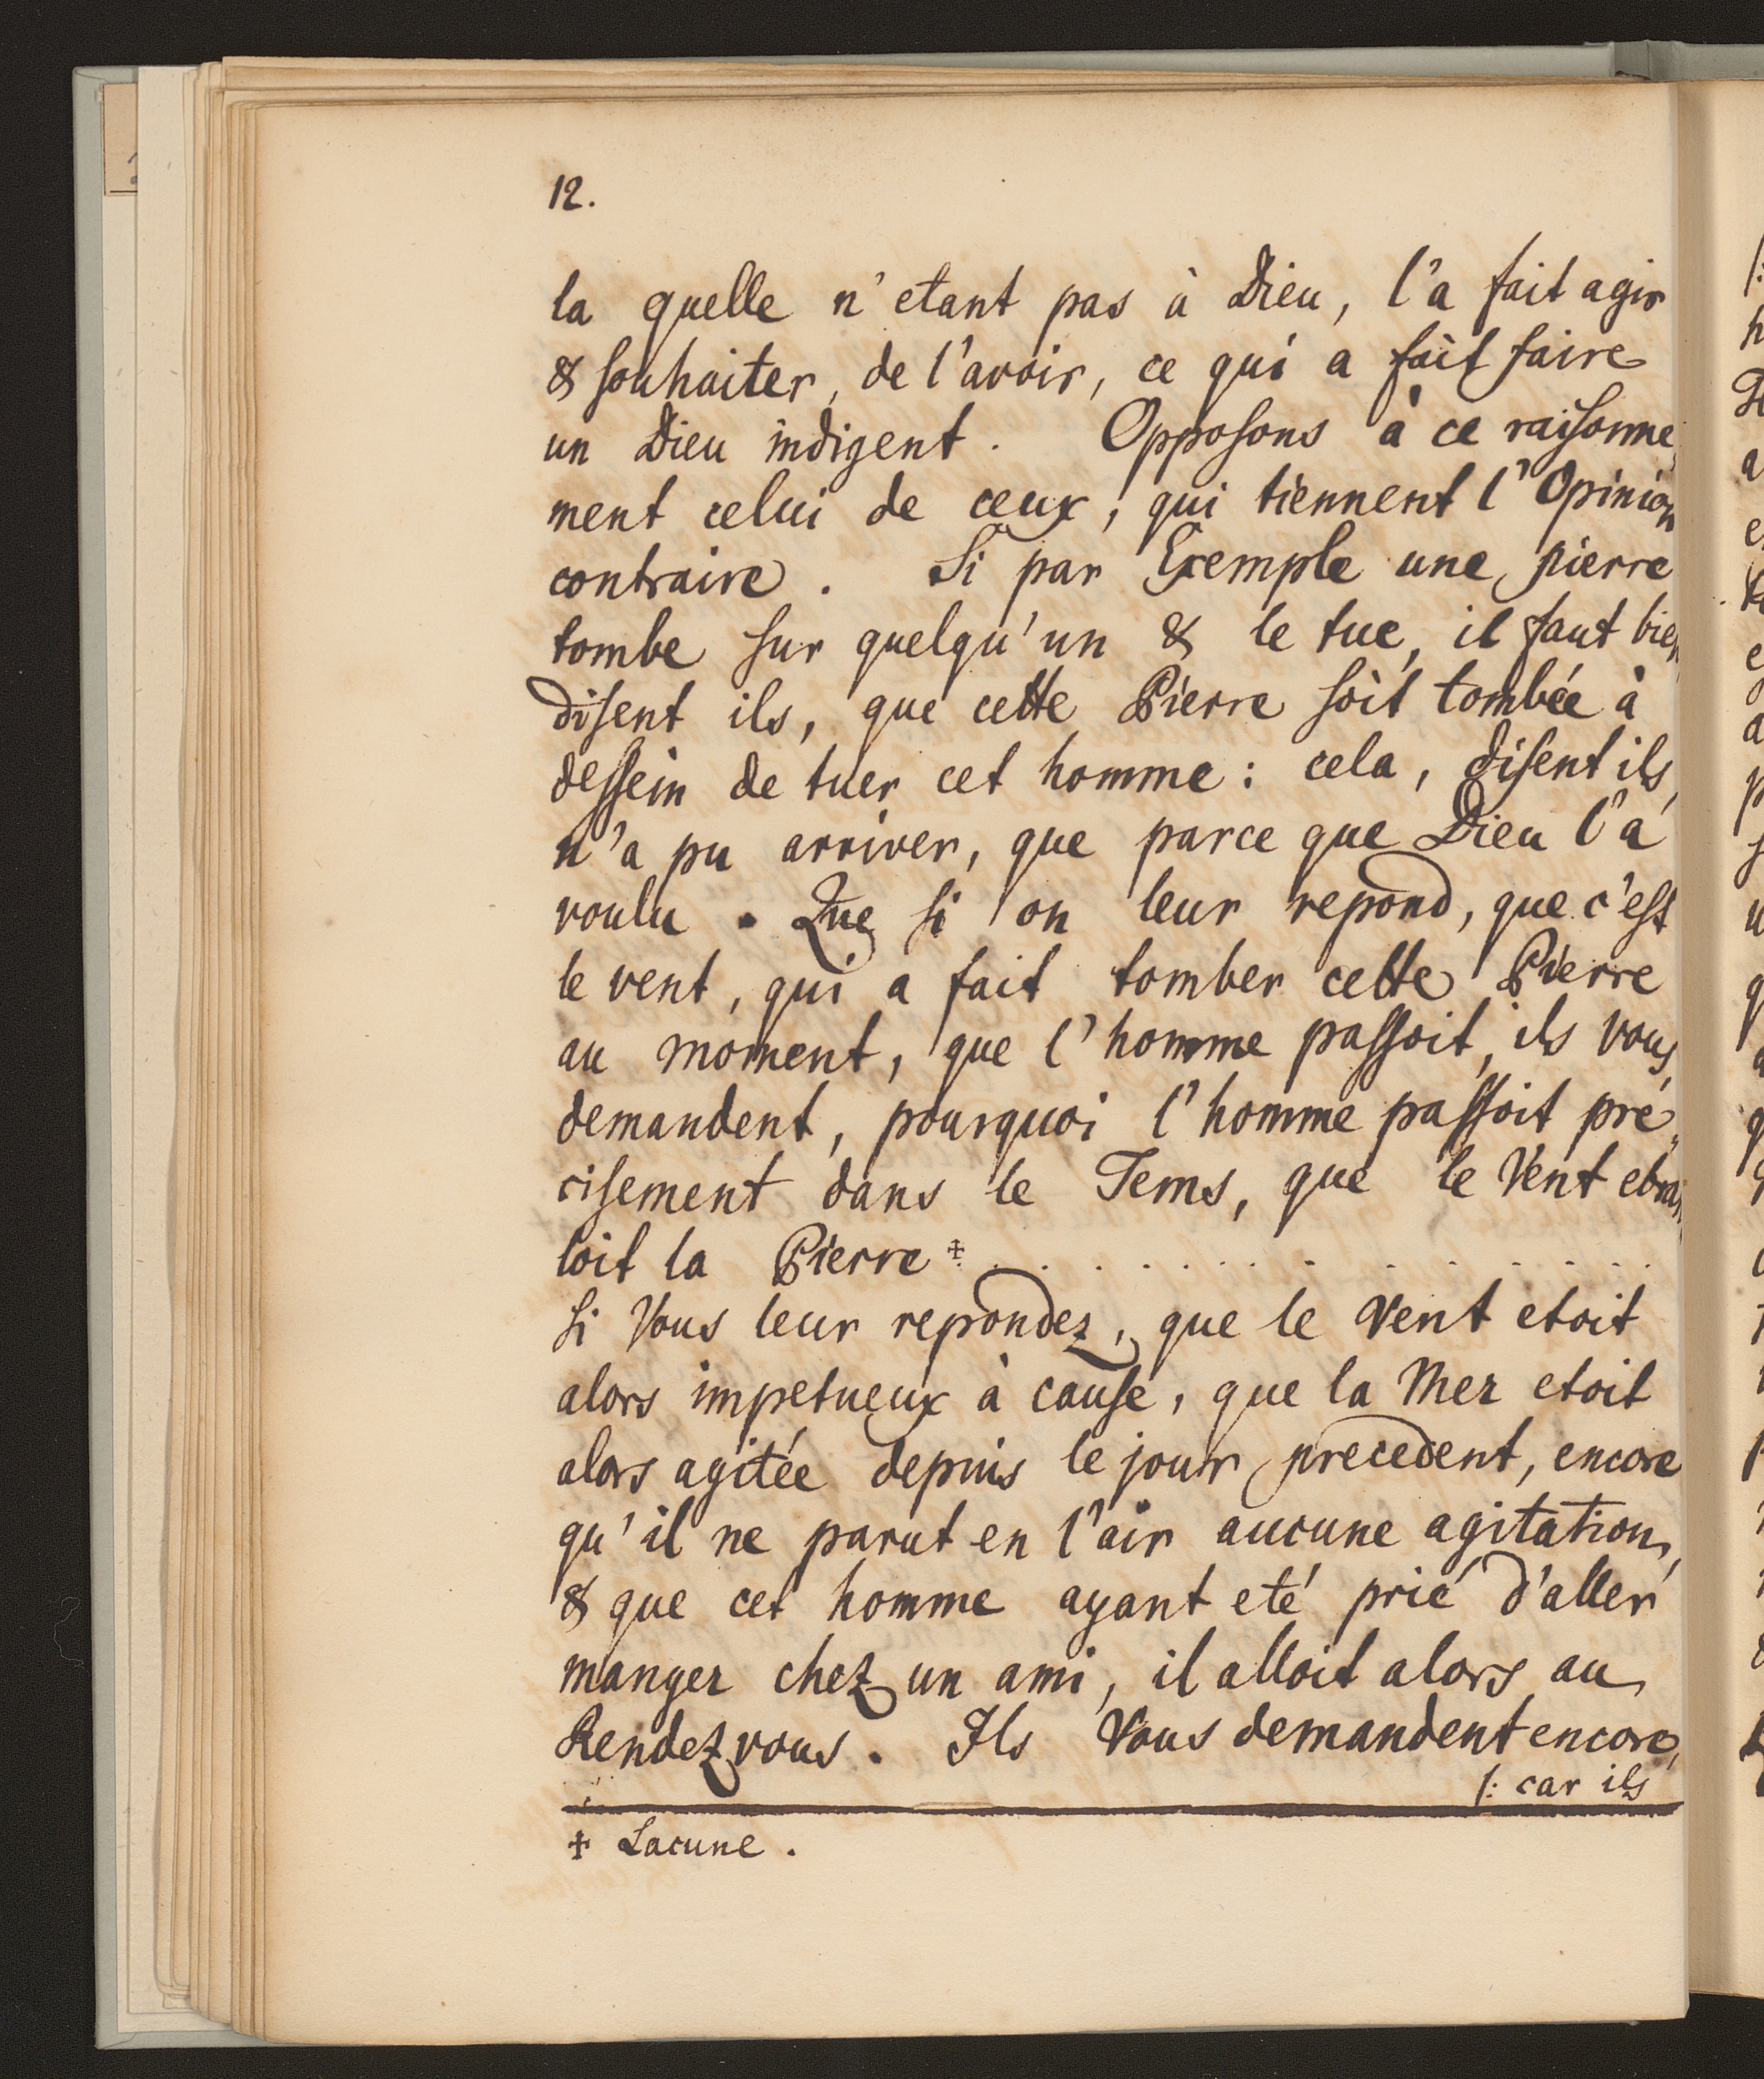 12.
la quelle n'etant pas à Dieu, l'a fait agir
& souhaiter, de l'avoir, ce qui a fait faire
un Dieu indigent. Opposons à ce raisonne
ment celui de ceux, qui tiennent l'Opinion
contraire. Si par Exemple une pierre
tombe sur quelqu'un & le tue, il faut bien
disent ils, que cette Pierre soit tombée à
dessein de tuer cet homme: cela, disent ils,
n'a pu arriver, que parce que Dieu l'a
voulu. Que si on leur repond, que c'est
le vent, qui a fait tomber cette Pierre
au moment, que l'homme passoit, ils vous
demandent, pourquoi l'homme passoit pre
cisement dans le Tems, que le Vent ebran
loit la Pierre ‡ . . . . . . . . . . . . . .
Si Vous leur repondez, que le Vent etoit
alors impetueux à cause, que la Mer etoit
alors agitée depuis le jour precedent, encore
qu'il ne parut en l'air aucune agitation,
& que cet homme ayant eté prié d'aller
manger chez un ami, il alloit alors au
Rendez vous. Ils Vous demandent encore,
/: car ils
‡ Lacune.